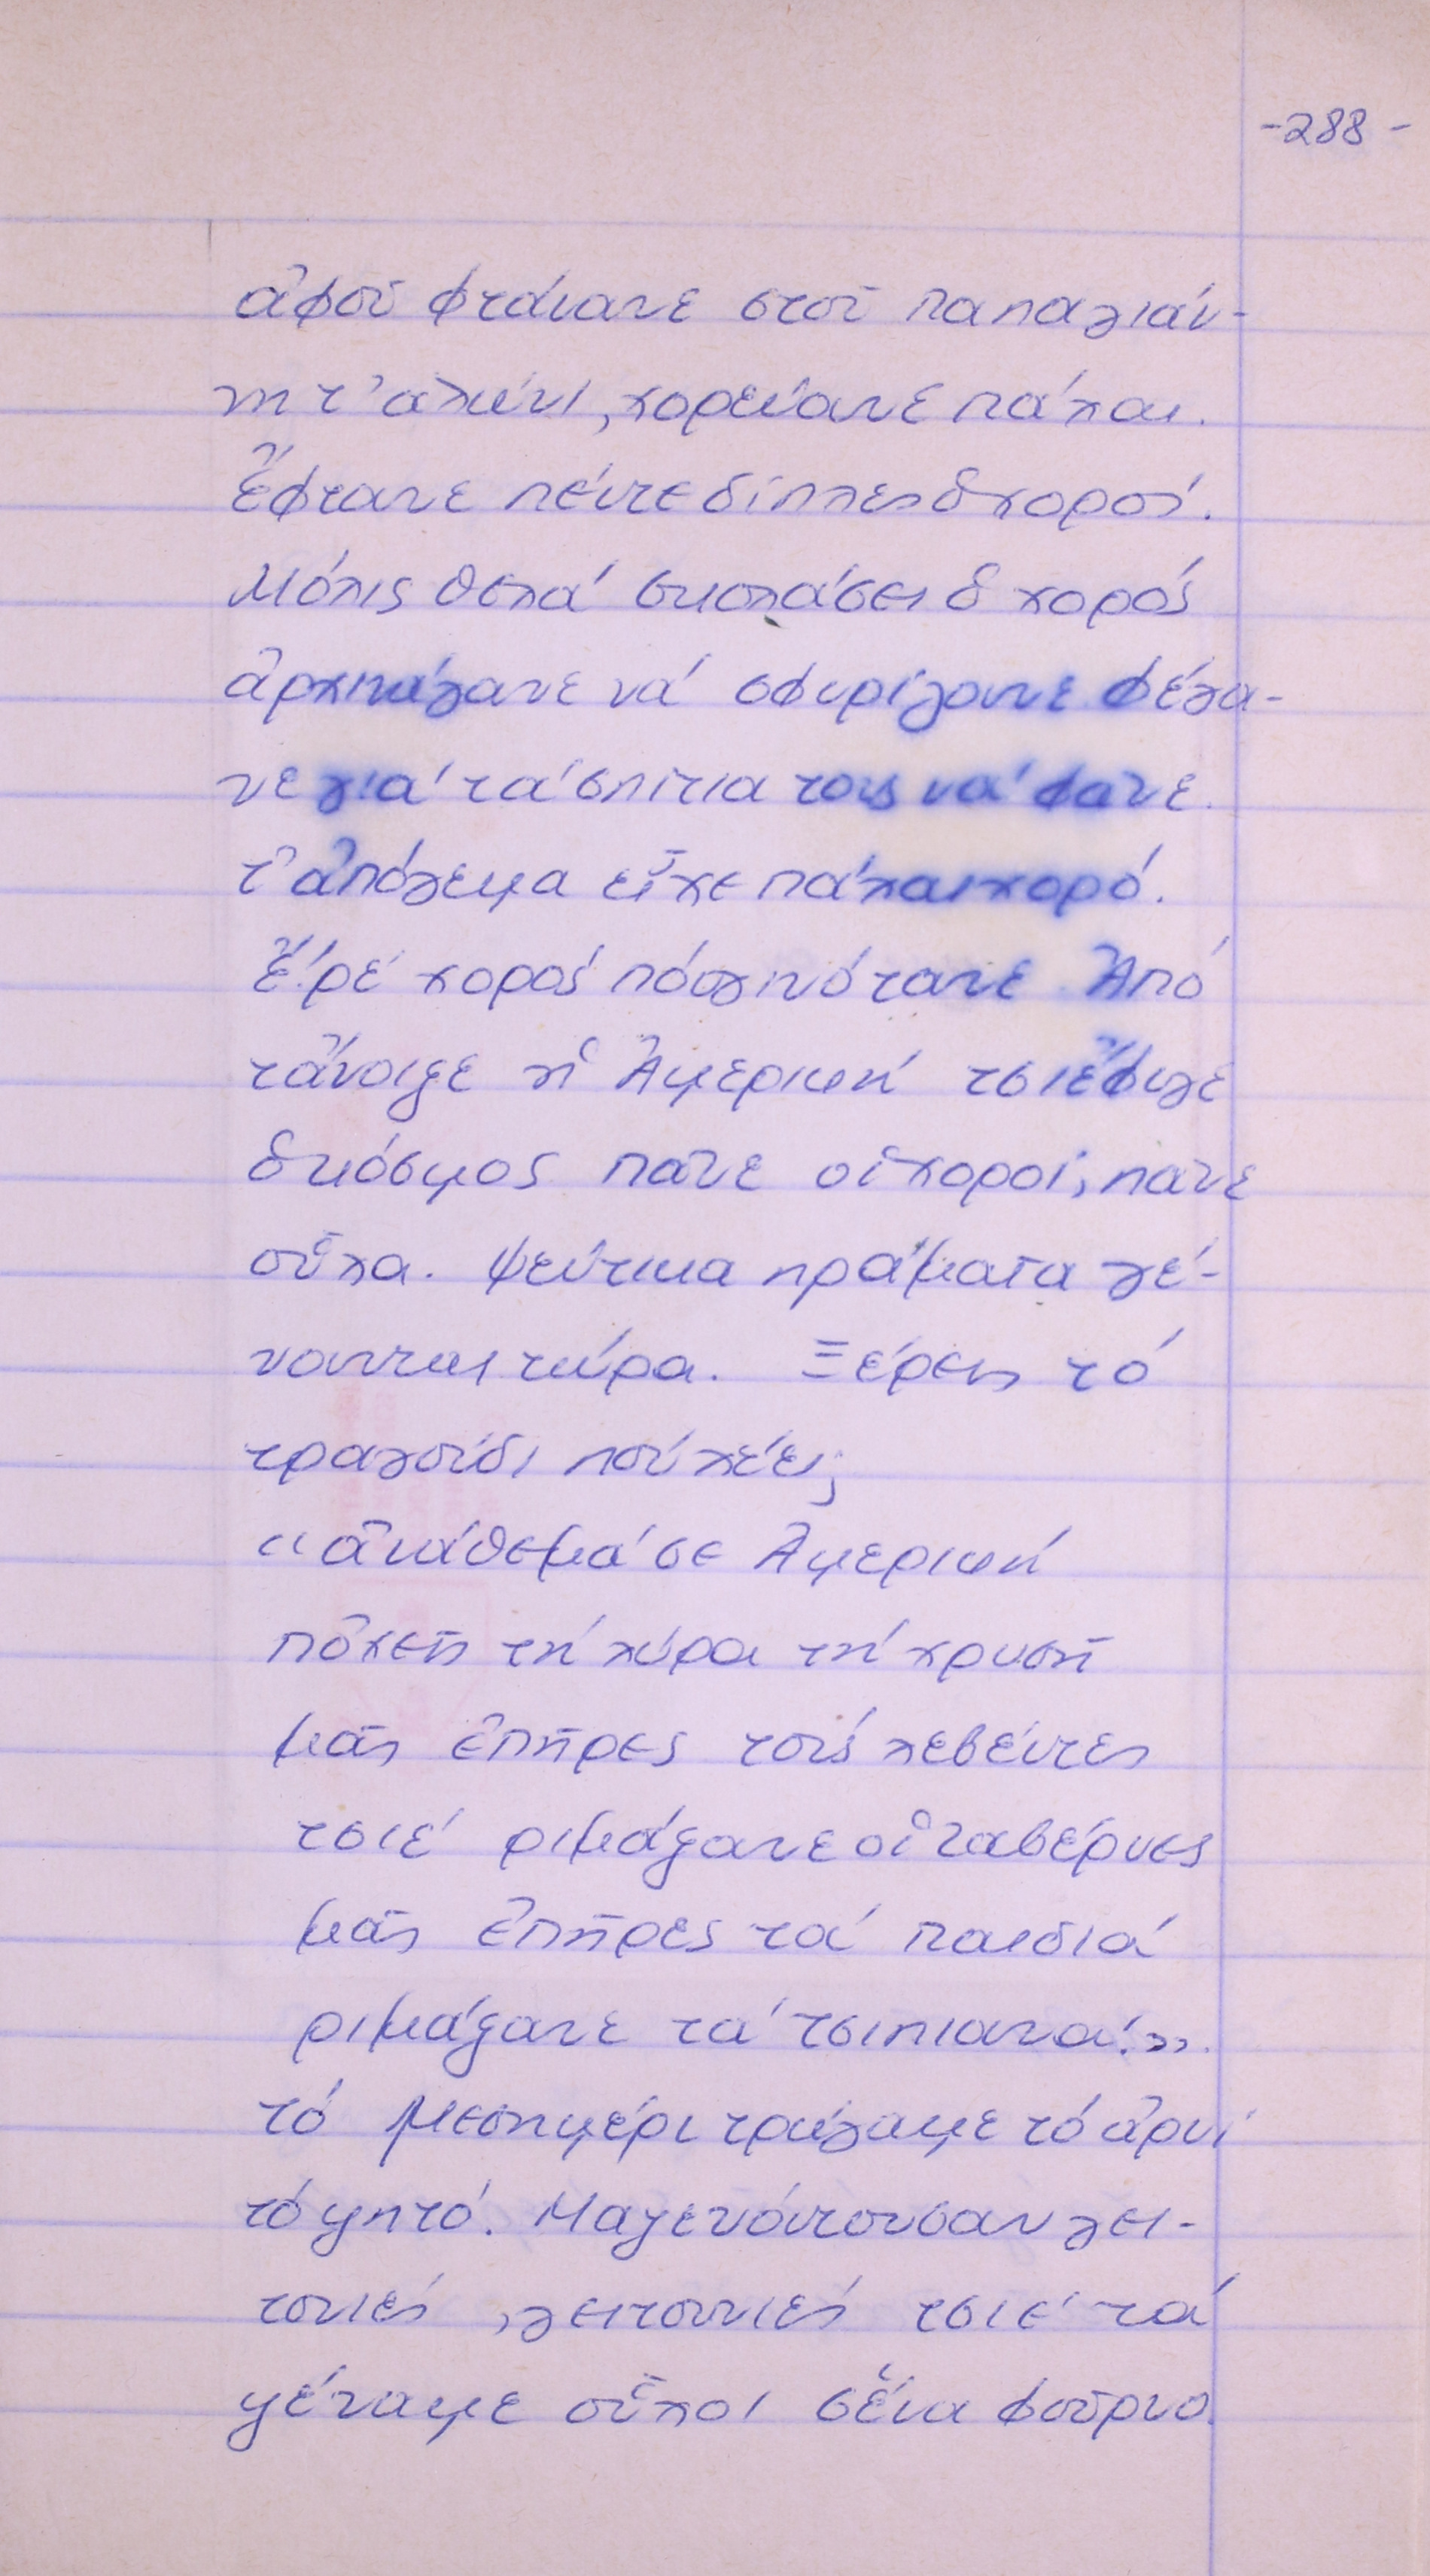 -288-
ἀφοῦ φτάνανε στοῦ Παπαγιάν-
νη τ'αλώνι, χορεύανε πάλαι.
Ἔφτανε πέντε δίπλες ὁ χορός.
Μόλις θελά σκολάσει ὁ χορός
ἀρχινάγανε νά σφυρίζουνε φέγα-
νε γιά τά σπίτια τους νά φᾶνε.
τ'ἀπόγεμα εἶχε πάλαι χορό.
Ἔ! ρέ χορός πόσγινότανε. Ἀπό
τἄνοιξε ἡ Ἀμερική τσιἔφυγε
ὁ κόσμος πᾶνε οἱ χοροί, πᾶνε
οὗλα. Ψεύτικα πράματα γέ-
νουνται τώρα. Ξέρεις τό
τραγούδι πού λέει;
«ἀνάθεμά σε Ἀμερική
πὄχεις τή λύρα τή χρυσή
μᾶς ἐπῆρες τούς λεβέντες
τσιέ ριμάξανε οἱ ταβέρνες
μᾶς ἐπῆρες τά παιδιά
ριμάξανε τά τσιπιανά!».
τό Μεσημέρι τρώγαμε τό ἀρνί
τό ψητό. Μαζευόντουσαν γει-
τονιές, γειτονιές τσιέ τά
ψέναμε οὗλοι σἕνα φοῦρνο.